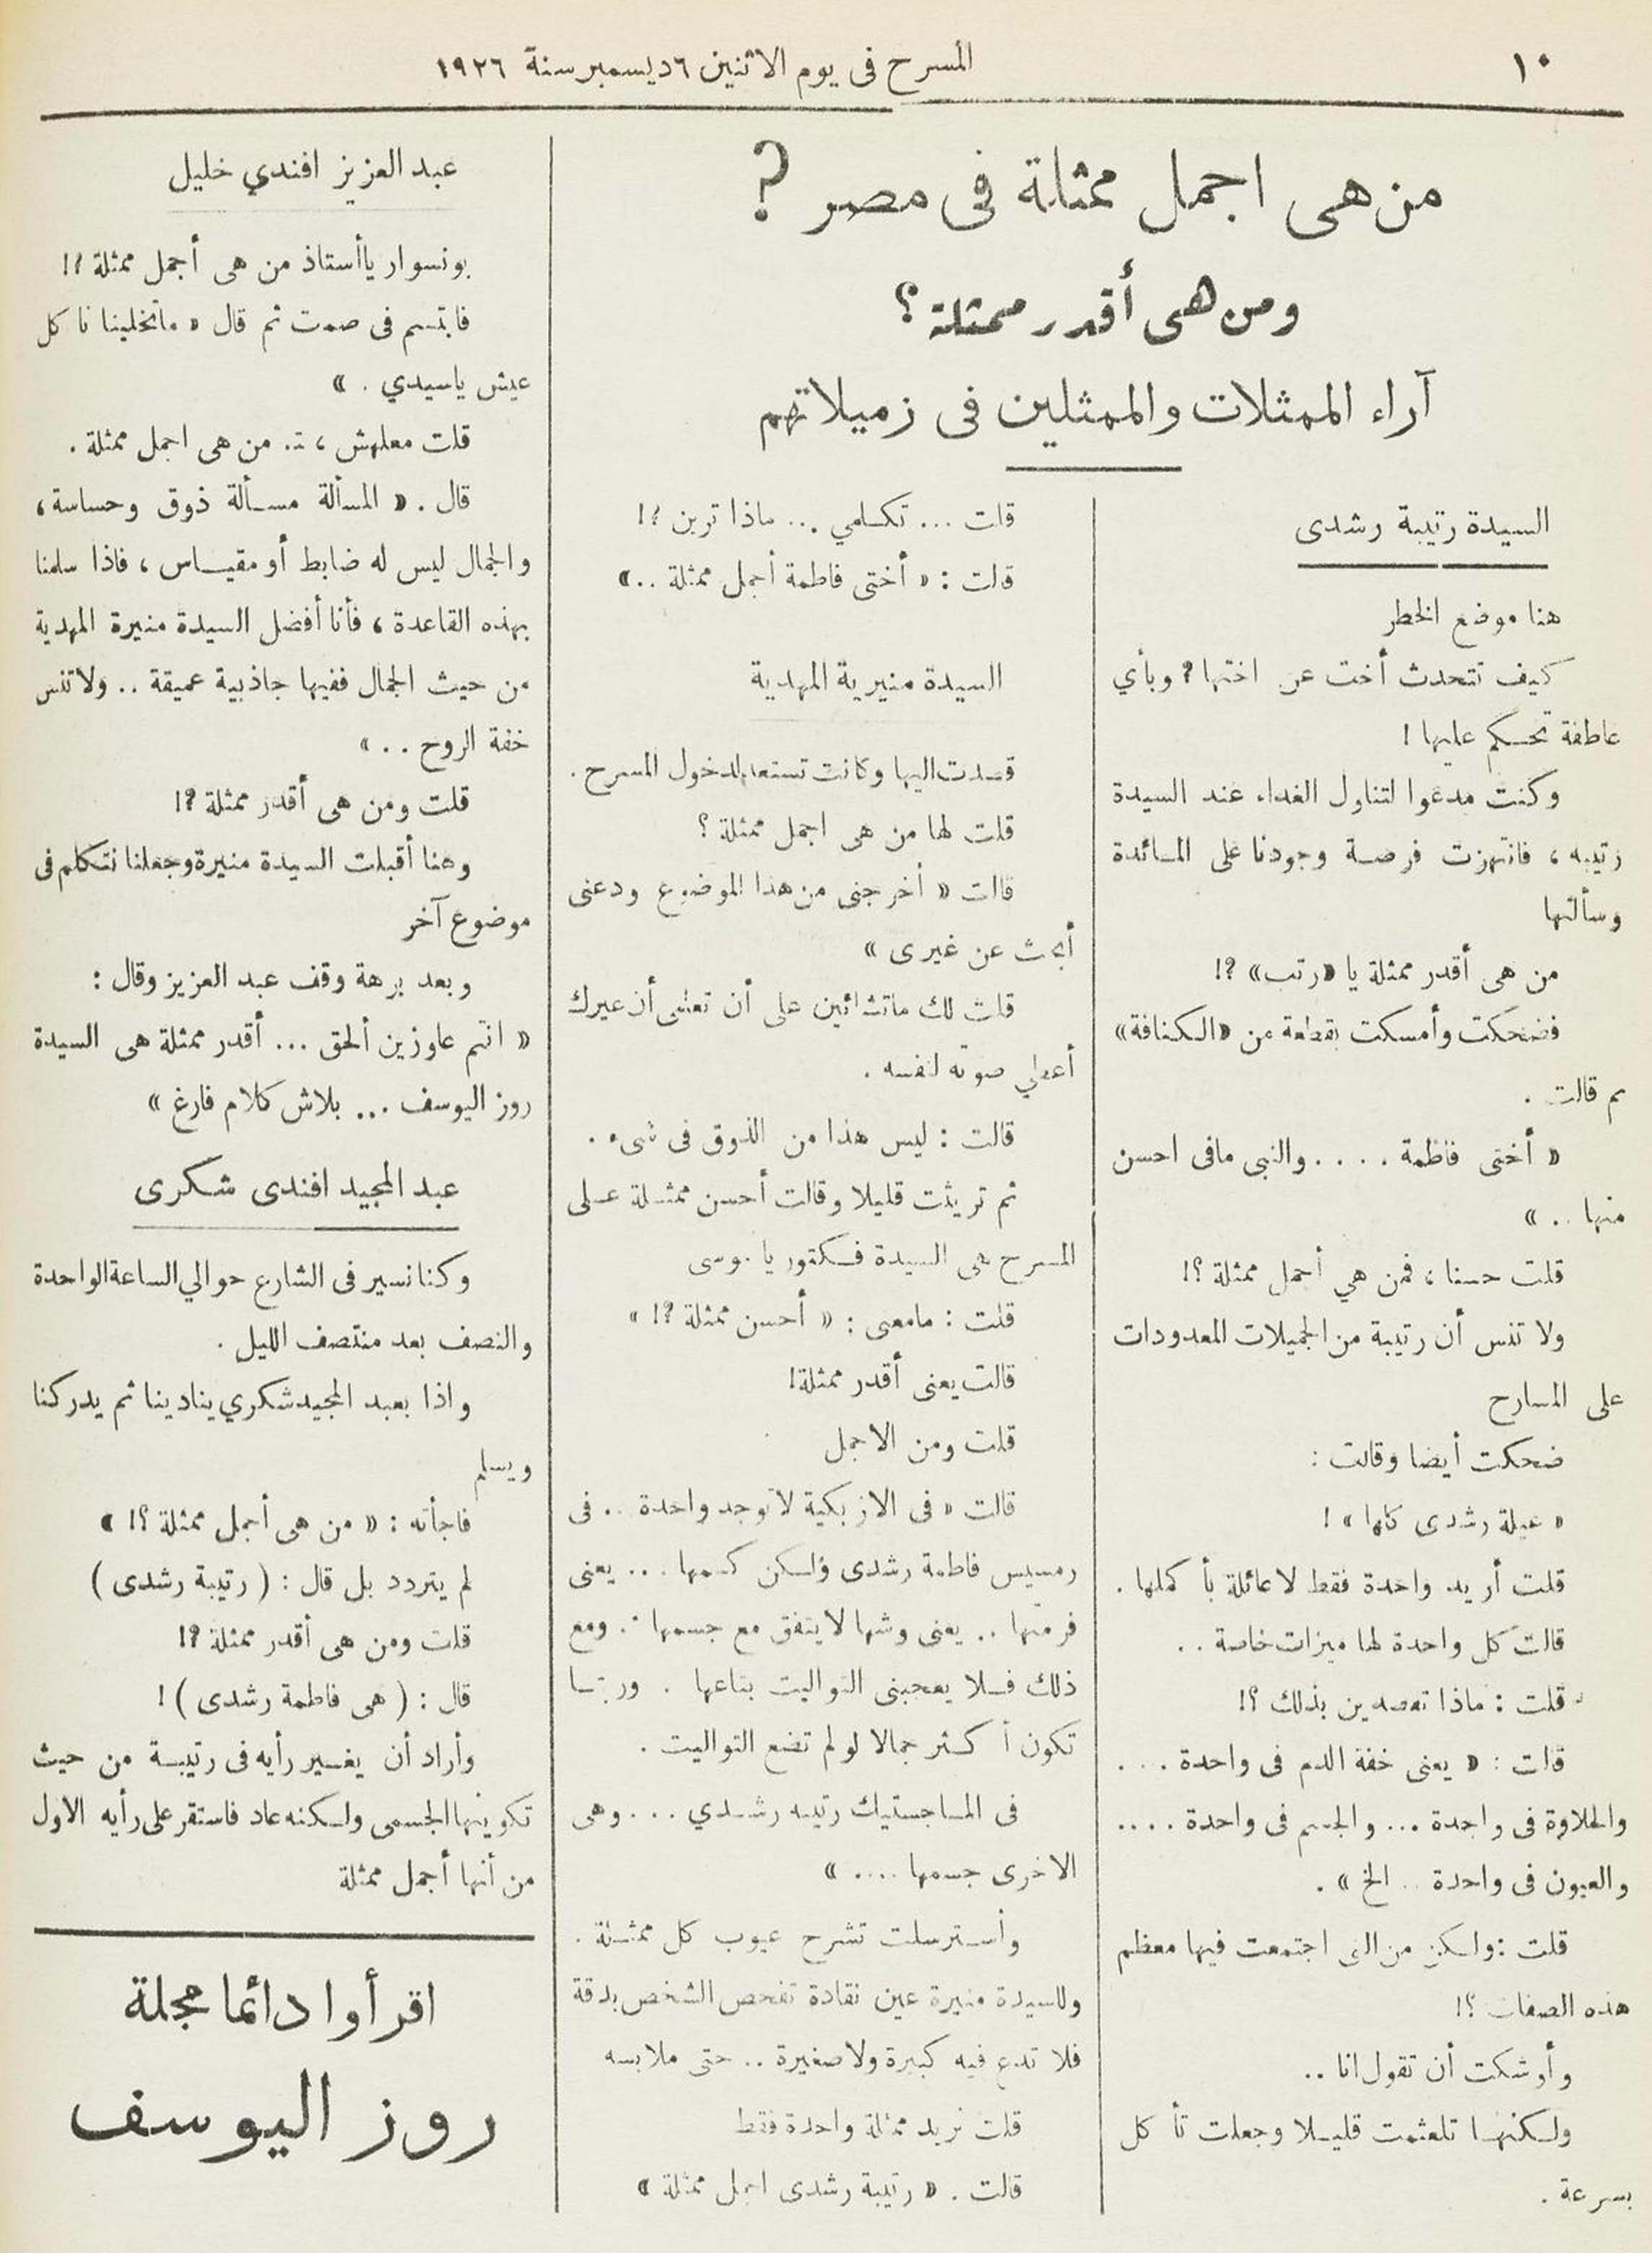 ١٠
المسرح فى يوم الاثنين ٦ ديسمبر سنة ١٩٢٦
من هى اجمل ممثلة فى مصر ؟
ومن هى أقدر ممثلة ؟
آراء الممثلات والممثلين فى زميلاتهم
السيدة رتيبة رشدى
هنا موضع الخطر
كيف تتحدث أخت عن اختها ؟ وبأي
عاطفة تحكم عليها !
وكنت مدعوا لتناول الغداء عند السيدة
رتيبه ، فانتهزت فرصة وجودنا على المائدة
وسألتها
من هى أقدر ممثلة يا «رتب» ؟!
فضحكت وأمسكت بقطعة من «الكنافة»
ثم قالت .
« أختى فاطمة . . . . والنبى مافى احسن
منها .. »
قلت حسنا ، فمن هي أجمل ممثلة ؟!
ولا تنس أن رتيبة من الجميلات المعدودات
على المسارح
ضحكت أيضا وقالت :
« عيلة رشدى كلها » !
قلت أريد واحدة فقط لا عائلة بأكملها .
قالت كل واحدة لها ميزات خاصة . .
قلت : ماذا تقصدين بذلك ؟!
قالت : « يعنى خفة الدم فى واحدة . . .
والحلاوة فى واحدة ... والجسم فى واحدة ....
والعيون فى واحدة .. الخ » .
قلت : ولكن من التى اجتمعت فيها معظم
هذه الصفات ؟!
وأوشكت أن تقول انا ..
ولكنها تلعثمت قليلا وجعلت تأكل
بسرعة .
قلت ... تكلمي ... ماذا ترين ؟!
قالت : « أختى فاطمة أجمل ممثلة ..»
السيدة منيرية المهدية
قصدت اليها وكانت تستعد لدخول المسرح .
قلت لها من هى اجمل ممثلة ؟
قالت « أخرجنى من هذا الموضوع ودعنى
أبحث عن غيرى »
قلت لك ماتشائين على أن تعلمى أن غيرك
أعطي صوته لنفسه .
قالت : ليس هذا من الذوق فى شىء .
ثم تريثت قليلا وقالت أحسن ممثلة على
المسرح هى السيدة فكتوريا موسى
قلت : مامعنى : « أحسن ممثلة ؟! »
قالت يعنى أقدر ممثلة!
قلت ومن الاجمل
قالت « فى الازبكية لا توجد واحدة .. فى
رمسيس فاطمة رشدى ولكن كسمها ... يعنى
فرمتها .. يعنى وشها لايتفق مع جسمها .. ومع
ذلك فلا يعجبنى التواليت بتاعها . وربما
تكون أكثر جمالا لو لم تضع التواليت .
فى الماجستيك رتيبه رشدي ... وهى
الاخرى جسمها .... »
وأسترسلت تشرح عيوب كل ممثلة .
وللسيدة منيرة عين نقادة تفحص الشخص بدقة
فلا تدع فيه كبيرة ولا صغيرة .. حتى ملابسه
قلت نريد ممثلة واحدة فقط
قالت . « رتيبة رشدى اجمل ممثلة »
عبد العزيز افندي خليل
بونسوار ياأستاذ من هى أجمل ممثلة ؟!
فابتسم فى صمت ثم قال « ماتخلينا نا كل
عيش ياسيدي . »
قلت معلهش ، من هى اجمل ممثلة .
قال . « المسألة مسألة ذوق وحساسة ،
والجمال ليس له ضابط أو مقياس ، فاذا سلمنا
بهذه القاعدة ، فأنا أفضل السيدة منيرة المهدية
من حيث الجمال ففيها جاذبية عميقة .. ولا تنس
خفة الروح .. »
قلت ومن هى أقدر ممثلة ؟!
وهنا أقبلت السيدة منيرة وجعلنا نتكلم فى
موضوع آخر
وبعد برهة وقف عبد العزيز وقال :
« انتم عاوزين ألحق ... أقدر ممثلة هى السيدة
روز اليوسف ... بلاش كلام فارغ »
عبد المجيد افندى شكرى
وكنا نسير فى الشارع حوالي الساعة الواحدة
والنصف بعد منتصف الليل .
واذا بعبد المجيد شكري ينادينا ثم يدركنا
ويسلم
فاجأته : « من هى أجمل ممثلة ؟! »
لم يتردد بل قال : ( رتيبة رشدى )
قلت ومن هى أقدر ممثلة ؟!
قال : ( هى فاطمة رشدى ) !
وأراد أن يغير رأيه فى رتيبة من حيث
تكوينها الجسمى ولكنه عاد فاستقر على رأيه الاول
من أنها أجمل ممثلة
اقرأوا دائما مجلة
روز اليوسف